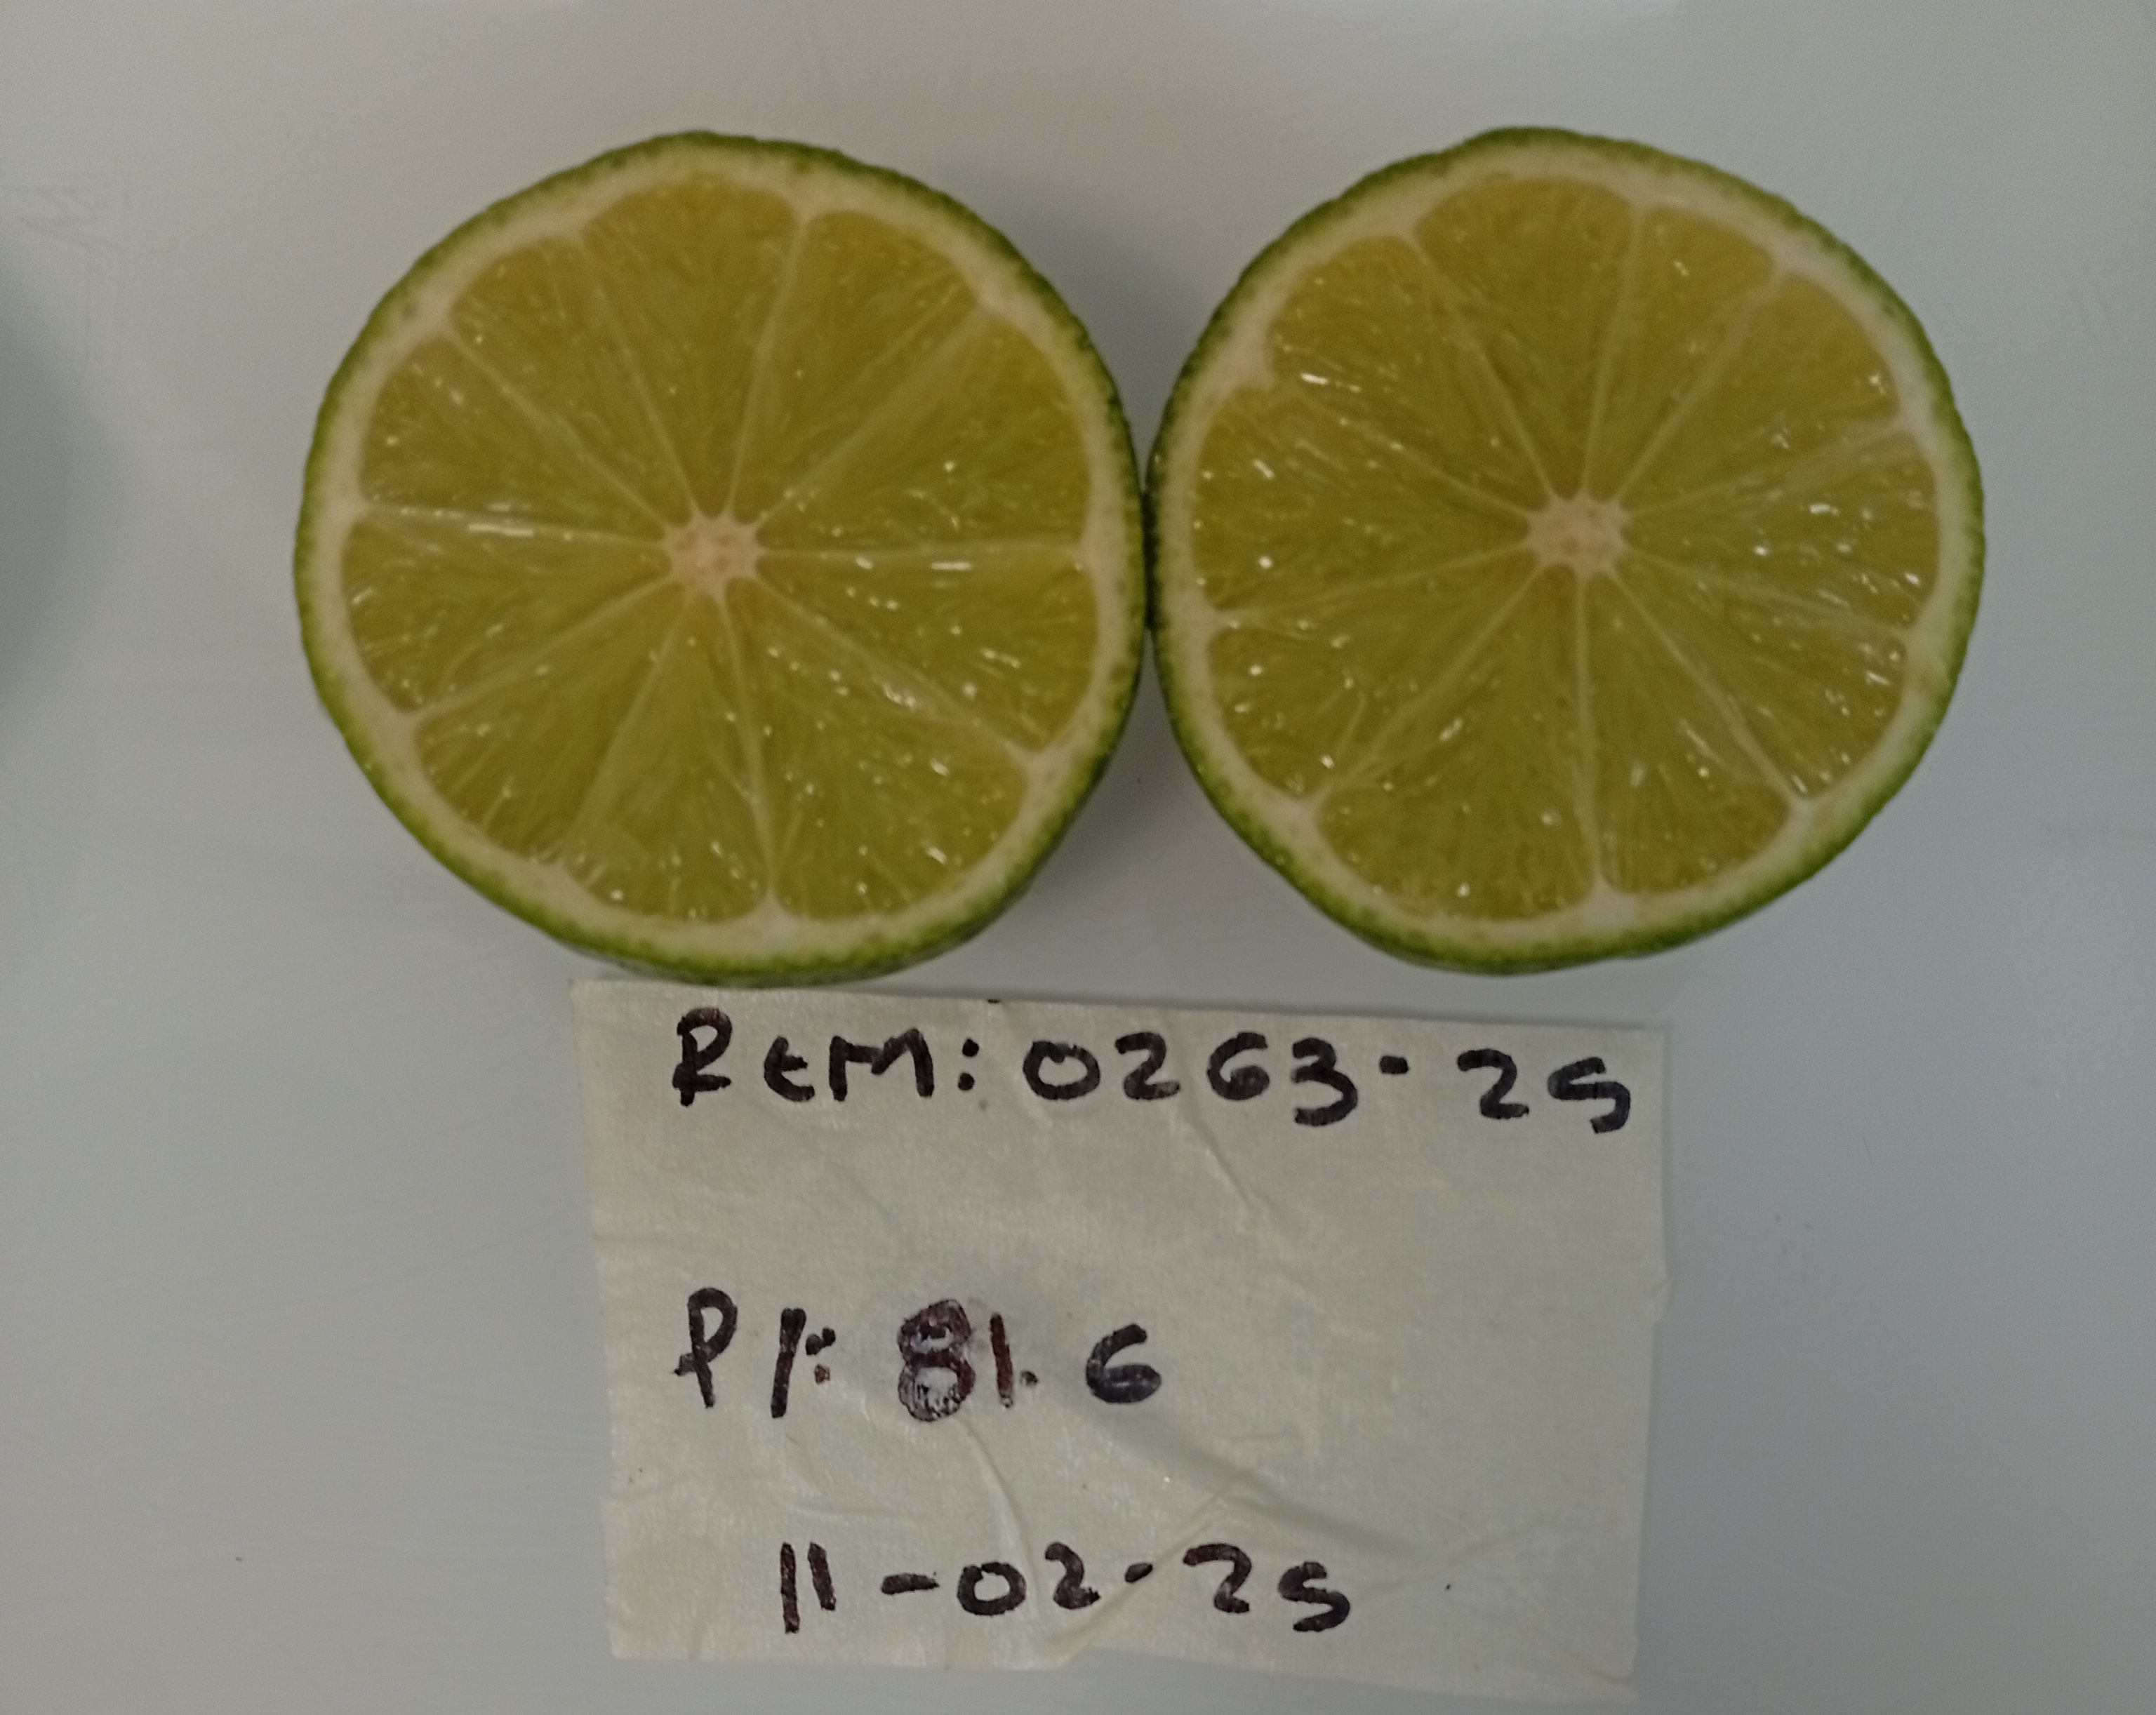 REM: 0263-25
P/: 81.6
11-02-25